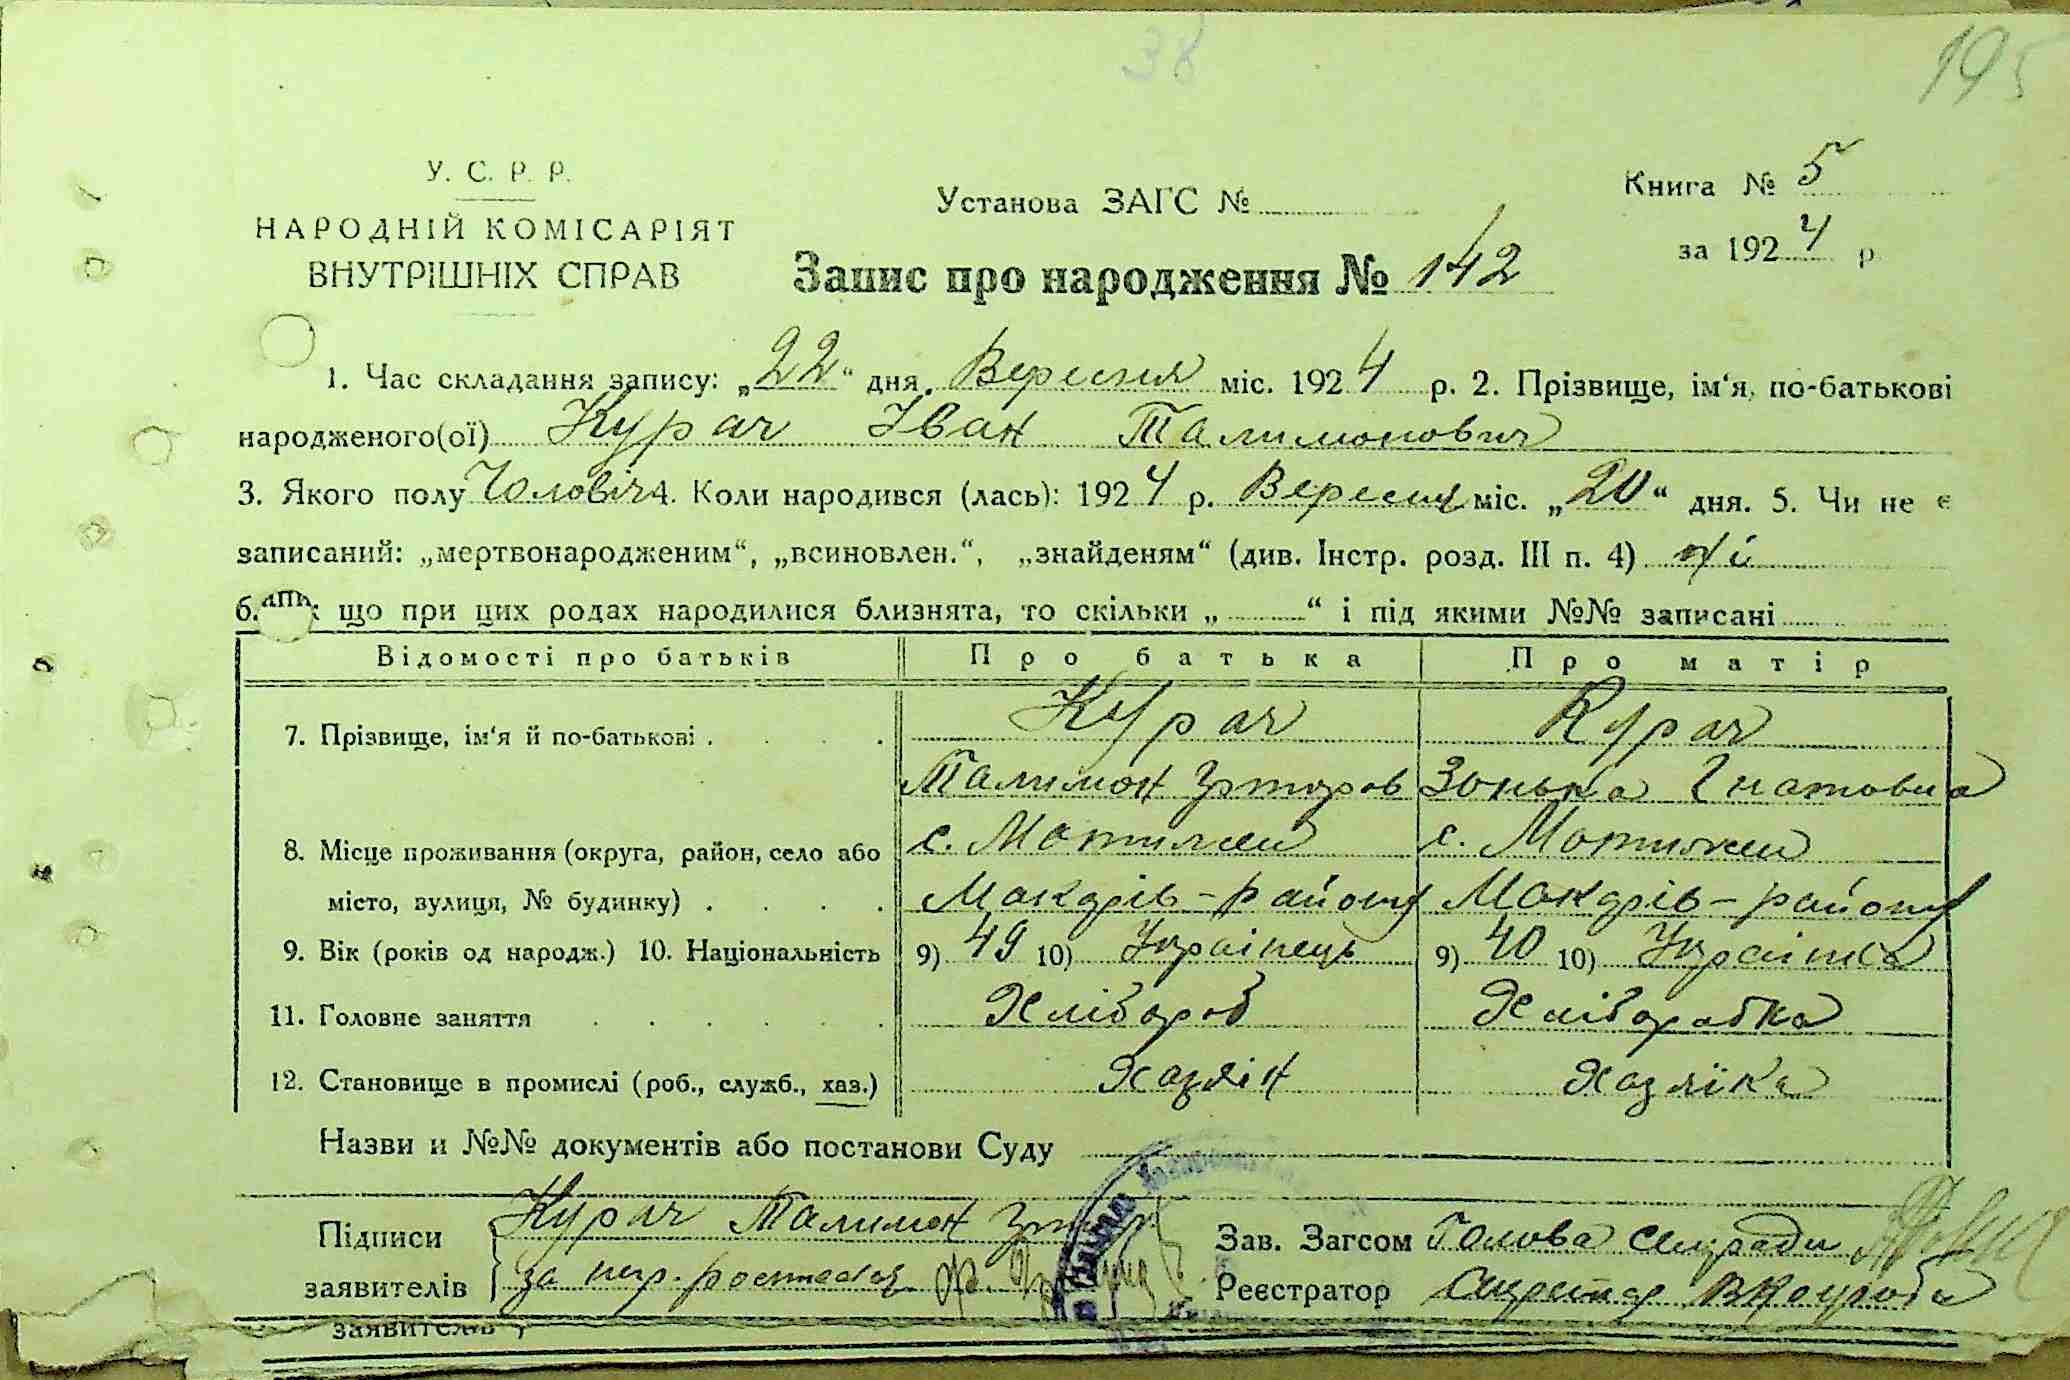 38
195
У. С. Р. Р.
НАРОДНІЙ КОМІСАРІЯТ
ВНУТРІШНІХ СПРАВ
Установа ЗАГС №
Книга № 5
за 1924 р
Запис про народження № 142
1. Час складання запису: „22“ дня Вересня міс. 1924 р. 2. Прізвище, ім‘я, по-батькові
народженого(ої) Курач Іван Талимонович
3. Якого полу Чоловіч 4. Коли народився (лась): 1924 р. Вересня міс. „20“ дня. 5. Чи не є
записаний: „мертвонародженим“, „всиновлен.“, „знайденям“ (див. Інстр. розд. III п. 4) ні
6. що при цих родах народилися близнята, то скільки „ “ і під якими №№ записані
Відомості про батьків Про батька Про матір
7. Прізвище, ім‘я й по-батькові Курач Курач
Талимон Зонька Гнатовна
8. Місце проживання (округа, район, село або с. Мотижен с. Мотижен
місто, вулиця, № будинку) Макарів-району Макарів-району
9. Вік (років од народж.) 10. Національність 9) 49 10) Українець 9) 40 10) Українка
11. Головне заняття Хлібороб Хліборобка
12. Становище в промислі (роб., служб., хаз.) Хазяїн Хазяїка
Назви и №№ документів або постанови Суду
Підписи Курач Талимон Зав. Загсом Голова сільради
заявителів за Реєстратор Секретар
заявителів